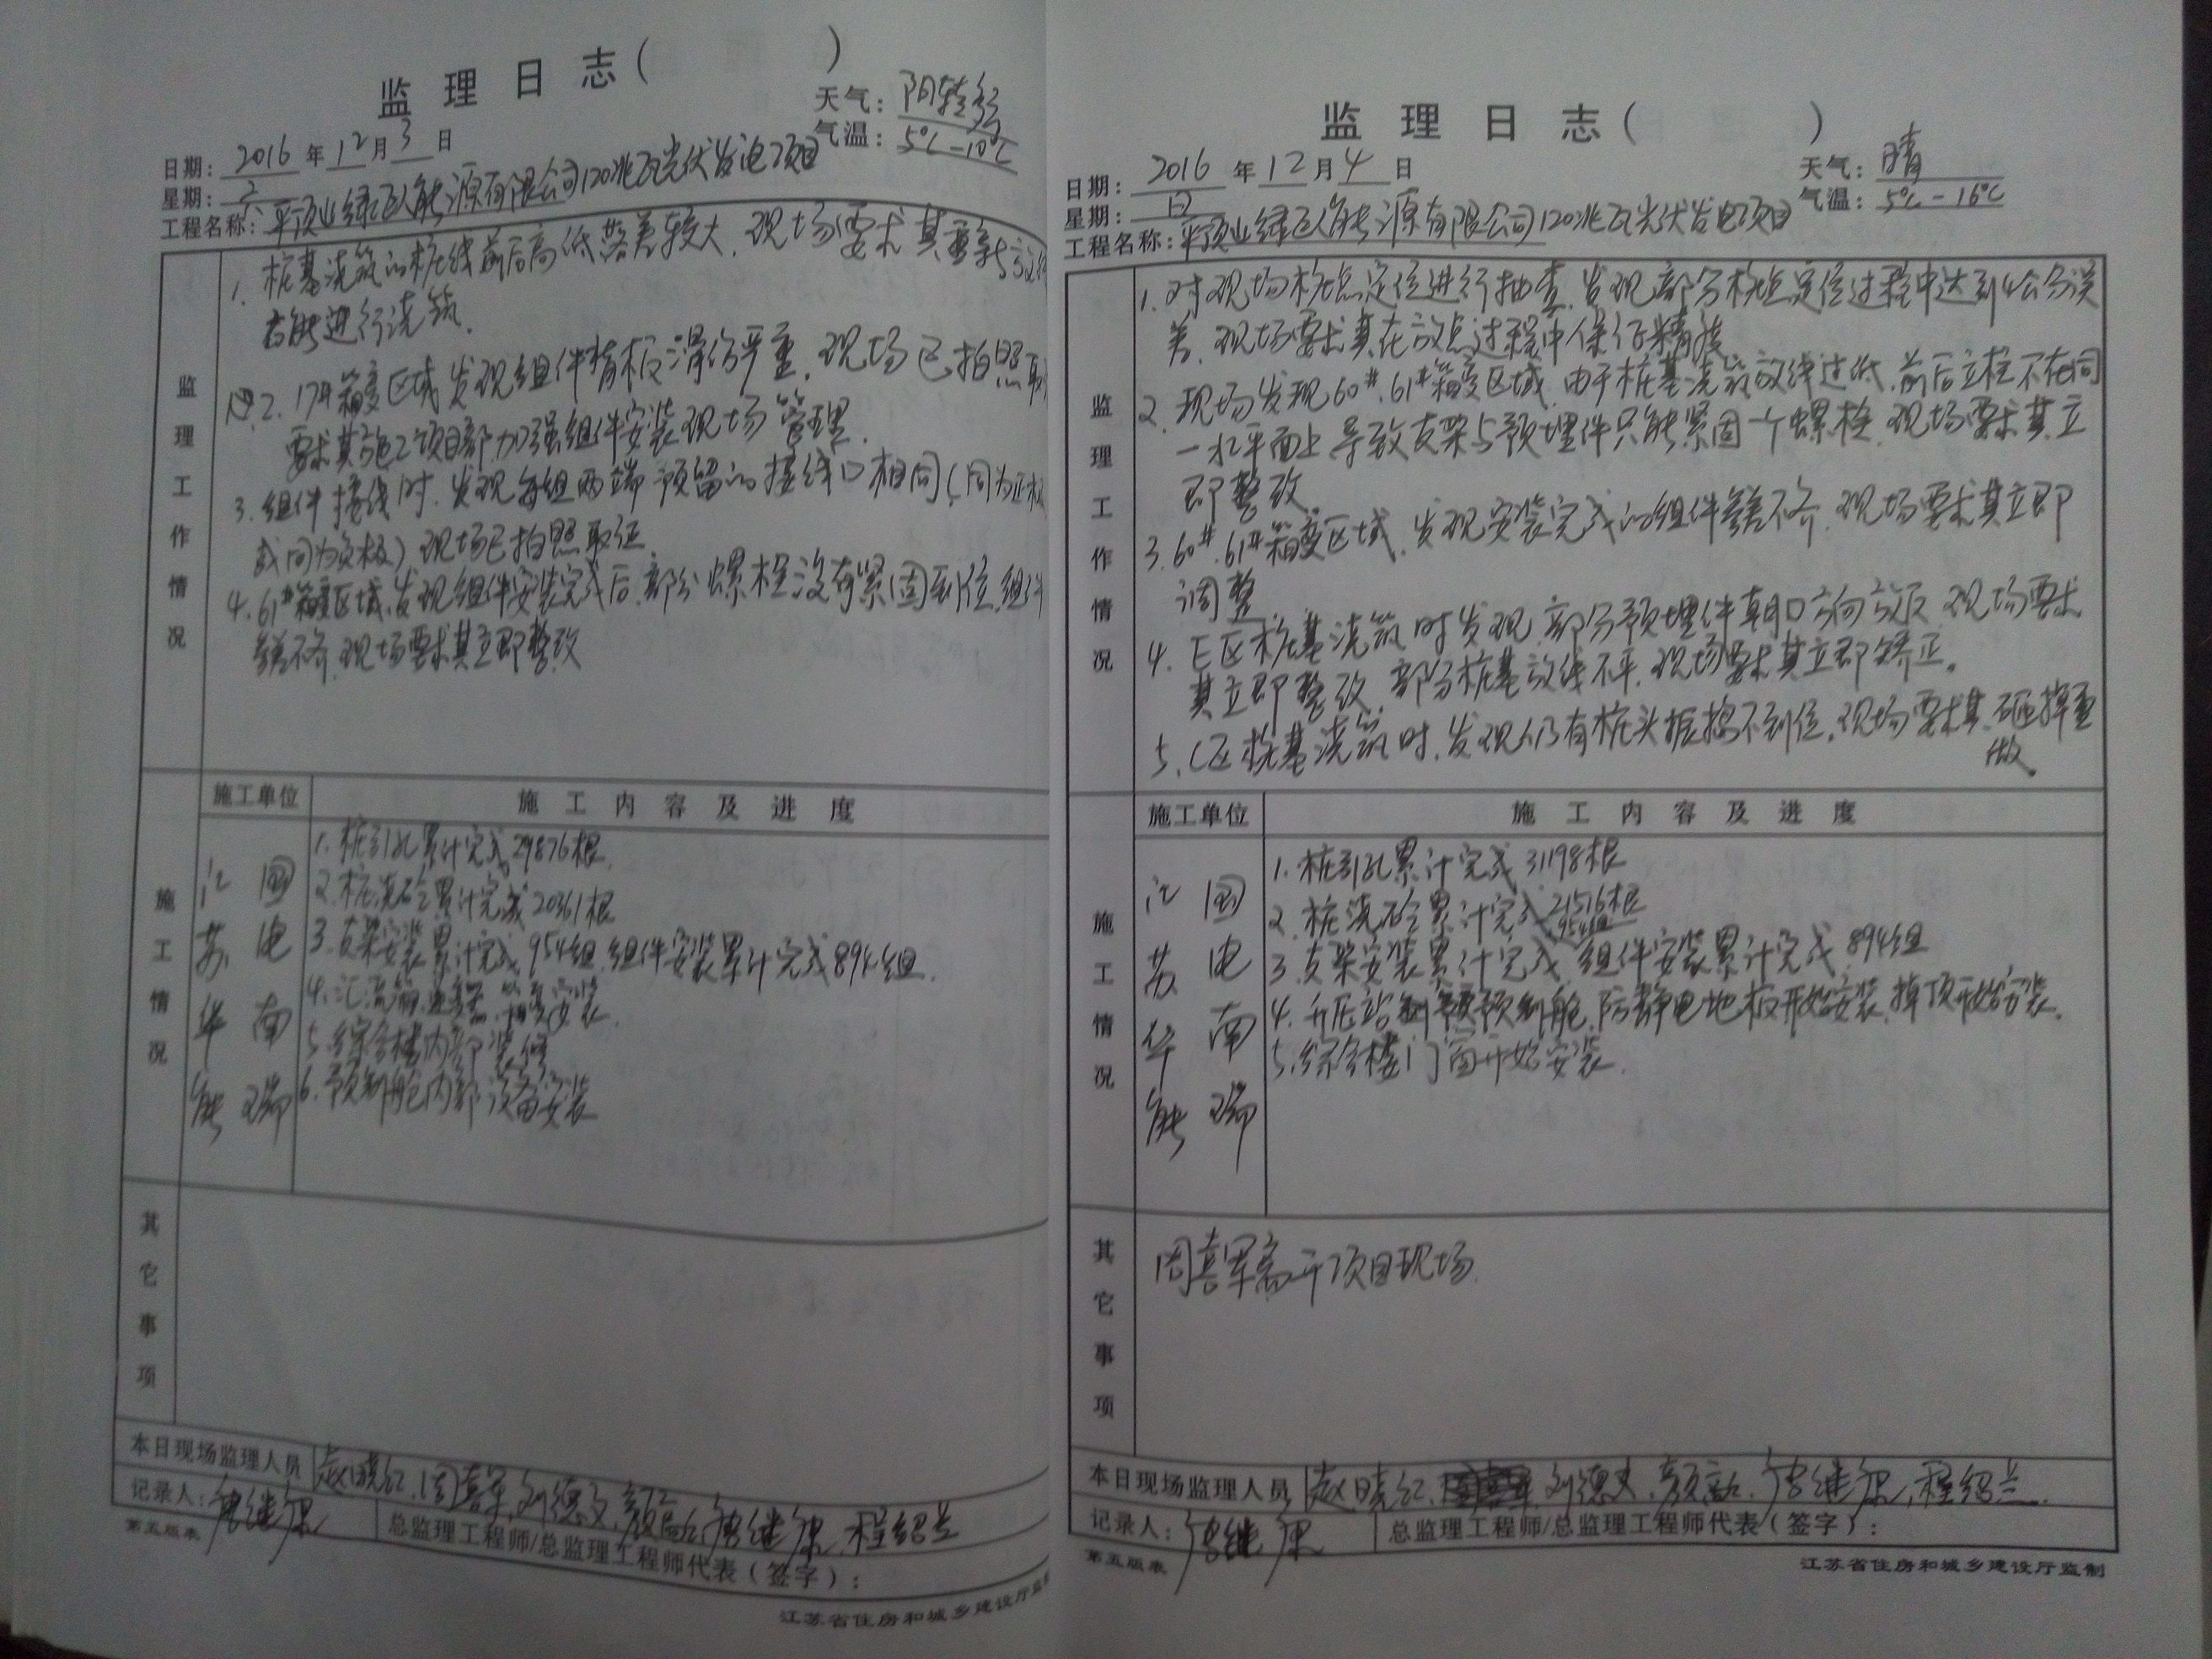 监 理 日 志 (            )
天气: 阴转多云
气温: 5℃-10℃
日期: 2016 年 12 月 3 日
星期:
工程名称: 平顶山绿巨人能源有限公司120兆瓦光伏发电项目
监理工作情况
1. 桩基浇筑的桩线前后高低落差较大,现场要求其重新放线
后能进行浇筑.
2. 17#箱变区域发现组件背板滑伤严重,现场已拍照取
要求其施工项目部加强组件安装现场管理.
3. 组件接线时,发现每组两端预留的接线口相同(同为正极
或同为负极)现场已拍照取证
4. 61#箱变区域,发现组件安装完成后,部分螺栓没有紧固到位,组件
参差不齐,现场要求其立即整改
施工情况
施工单位
施 工 内 容 及 进 度
江苏华能
国电南瑞
1. 桩引孔累计完成29876根.
2. 桩浇砼累计完成20361根
3. 支架安装累计完成954组,组件安装累计完成894组.
4. 汇流箱,逆变器,箱变安装.
5. 综合楼内部装修
6. 预制舱内部设备安装
其它事项
本日现场监理人员 赵晓红,周喜军,刘德文,颜高,唐继康,程绍兰
记录人: 唐继康
总监理工程师/总监理工程师代表(签字):
第五版表
江苏省住房和城乡建设厅监制
监 理 日 志 (            )
天气: 晴
气温: 5℃-16℃
日期: 2016 年 12 月 4 日
星期: 日
工程名称: 平顶山绿巨人能源有限公司120兆瓦光伏发电项目
监理工作情况
1. 对现场桩点定位进行抽查,发现部分桩点定位过程中达到4公分误
差,现场要求其在放点过程中保证精度
2. 现场发现60#.61#箱变区域,由于桩基浇筑放线过低,前后立柱不在同
一水平面上,导致支架与预埋件只能紧固一个螺栓,现场要求其立
即整改
3. 60#.61#箱变区域,发现安装完成的组件参差不齐,现场要求其立即
调整
4. E区桩基浇筑时发现,部分预埋件朝口方向放反,现场要求
其立即整改,部分桩基放线不平,现场要求其立即矫正。
5. C区桩基浇筑时,发现仍有桩头振捣不到位,现场要求其砸掉重
做。
施工情况
施工单位
施 工 内 容 及 进 度
江苏华能
国电南瑞
1. 桩引孔累计完成31198根
2. 桩浇砼累计完成21516根
954组
3. 支架安装累计完成 组件安装累计完成894组
4. 升压站预制舱,防静电地板开始安装,掉顶开始安装.
5. 综合楼门窗开始安装.
其它事项
周喜军离开项目现场.
本日现场监理人员 赵晓红,刘德文,颜高,唐继康,程绍兰.
记录人: 唐继康
总监理工程师/总监理工程师代表(签字):
第五版表
江苏省住房和城乡建设厅监制